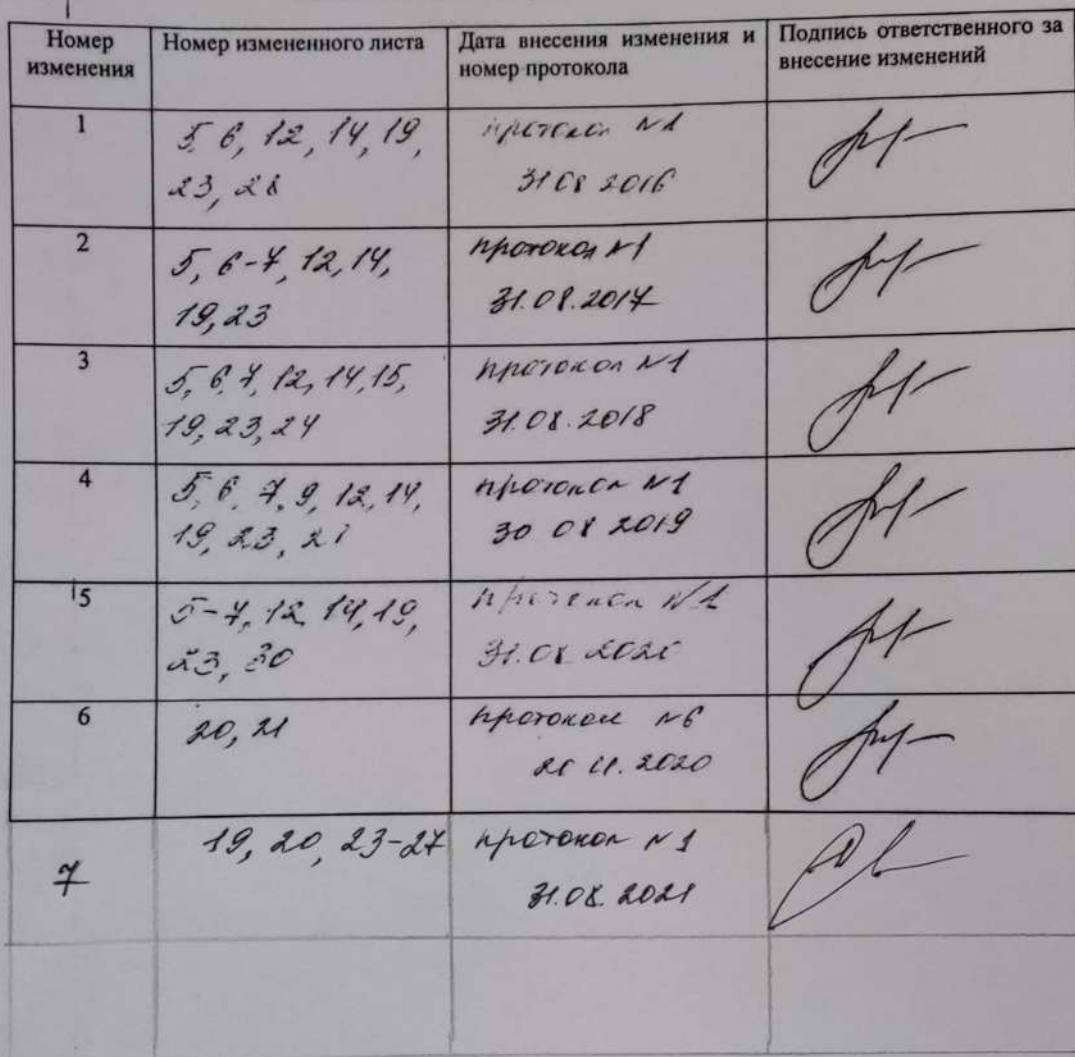 Номер изменения
Номер измененного листа
Дата внесения изменения и номер протокола
Подпись ответственного за внесение изменений
1
5, 6, 12, 14, 19,
23, 28
протокол №1
31 08 2016
2
5, 6-7, 12, 14,
19, 23
протокол №1
31.08.2017
3
5, 6, 7, 12, 14, 15,
19, 23, 24
протокол №1
31.08.2018
4
5, 6, 7, 9, 12, 14,
19, 23,
протокол №1
30 08 2019
5
5-7, 12, 14, 19,
23, 30
протокол №1
31.08 2020
6
20, 21
протокол №6
11.2020
7
19, 20, 23-27
протокол №1
31.08.2021